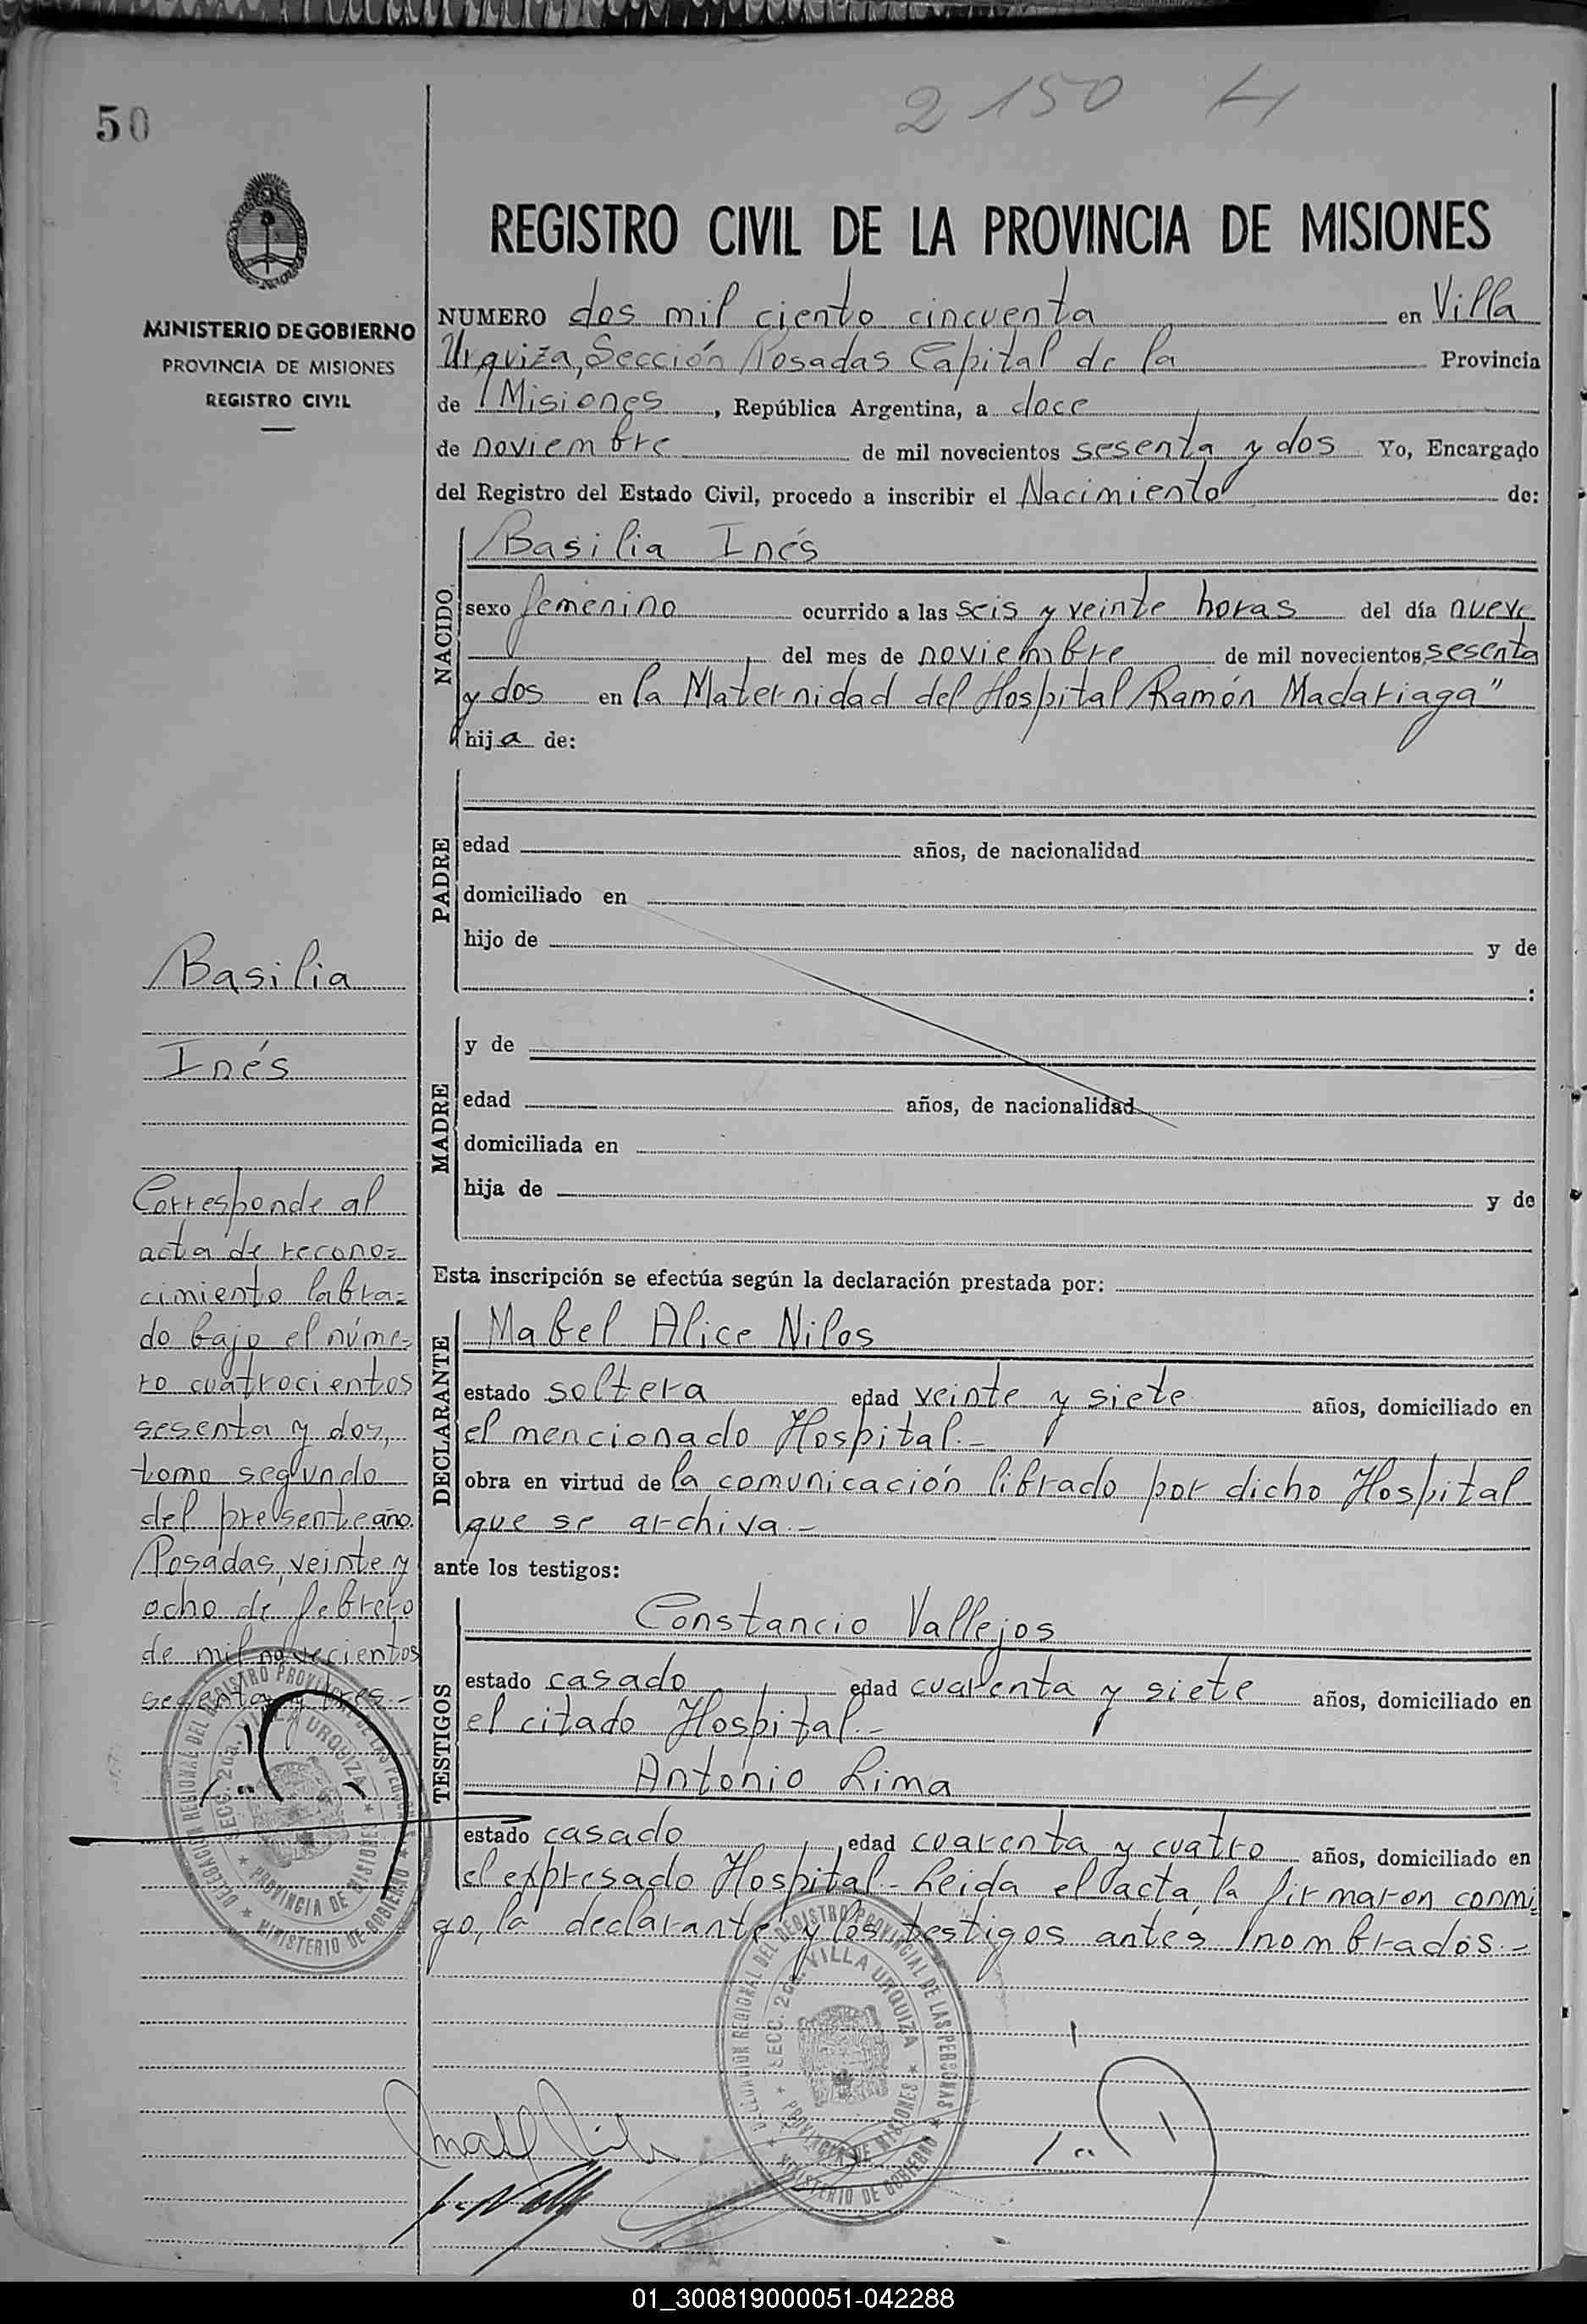 50
2150 H
REGISTRO CIVIL DE LA PROVINCIA DE MISIONES
MINISTERIO DE GOBIERNO
PROVINCIA DE MISIONES
REGISTRO CIVIL
NUMERO dos mil ciento cincuenta en Villa
Urquiza, Sección Posadas Capital de la Provincia
de Misiones, República Argentina, a doce
de noviembre de mil novecientos sesenta y dos Yo, Encargado
del Registro del Estado Civil, procedo a inscribir el Nacimiento de:
NACIDO
Basilia Inés
sexo femenino ocurrido a las seis y veinte horas del día nueve
del mes de noviembre de mil novecientos sesenta
y dos en la Maternidad del Hospital Ramón Madariaga"
hija de:
PADRE
edad años, de nacionalidad
domiciliado en
hijo de y de
:
MADRE
y de
edad años, de nacionalidad
domiciliada en
hija de y de
Esta inscripción se efectúa según la declaración prestada por:
DECLARANTE
Mabel Alice Nilos
estado soltera edad veinte y siete años, domiciliado en
el mencionado Hospital.-
obra en virtud de la comunicación librado por dicho Hospital
que se archiva.-
ante los testigos:
TESTIGOS
Constancio Vallejos
estado casado edad cuarenta y siete años, domiciliado en
el citado Hospital.-
Antonio Lima
estado casado, edad cuarenta y cuatro años, domiciliado en
el expresado Hospital.- Leida el acta, la firmaron conmi-
go, la declarante y los testigos antes nombrados.-
Basilia
Inés
Corresponde al
acta de recono=
cimiento labra=
do bajo el núme=
ro cuatrocientos
sesenta y dos,
tomo segundo
del presente año.
Posadas, veinte y
ocho de febrero
de mil novecientos
sesenta y tres.-
DELEGACIÓN REGIONAL DEL REGISTRO PROVINCIAL DE LAS PERSONAS
SECC. 2da. VILLA URQUIZA
PROVINCIA DE MISIONES
MINISTERIO DE GOBIERNO
DELEGACIÓN REGIONAL DEL REGISTRO PROVINCIAL DE LAS PERSONAS
SECC. 2da. VILLA URQUIZA
PROVINCIA DE MISIONES
MINISTERIO DE GOBIERNO
01_300819000051-042288